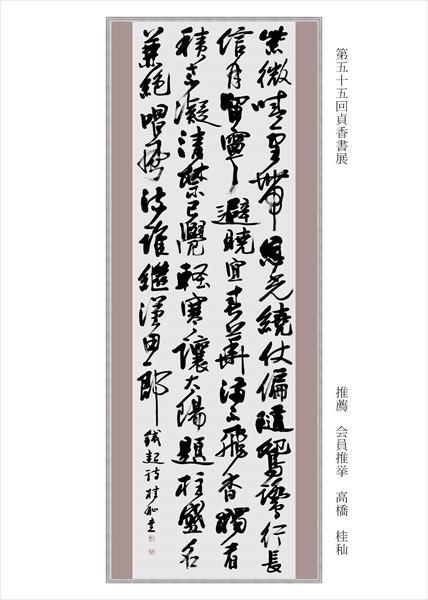 第五十五回貞香書展
推薦 会員推挙 高橋 桂秈
紫微晴雪帶恩光繞仗偏隨鴛鷺行長
信月留寧避曉宜春華滿不飛香獨看
積素凝清禁已覺輕寒讓太陽題柱盛名
兼絶唱風流誰繼漢田郎 錢起詩 桂秈書